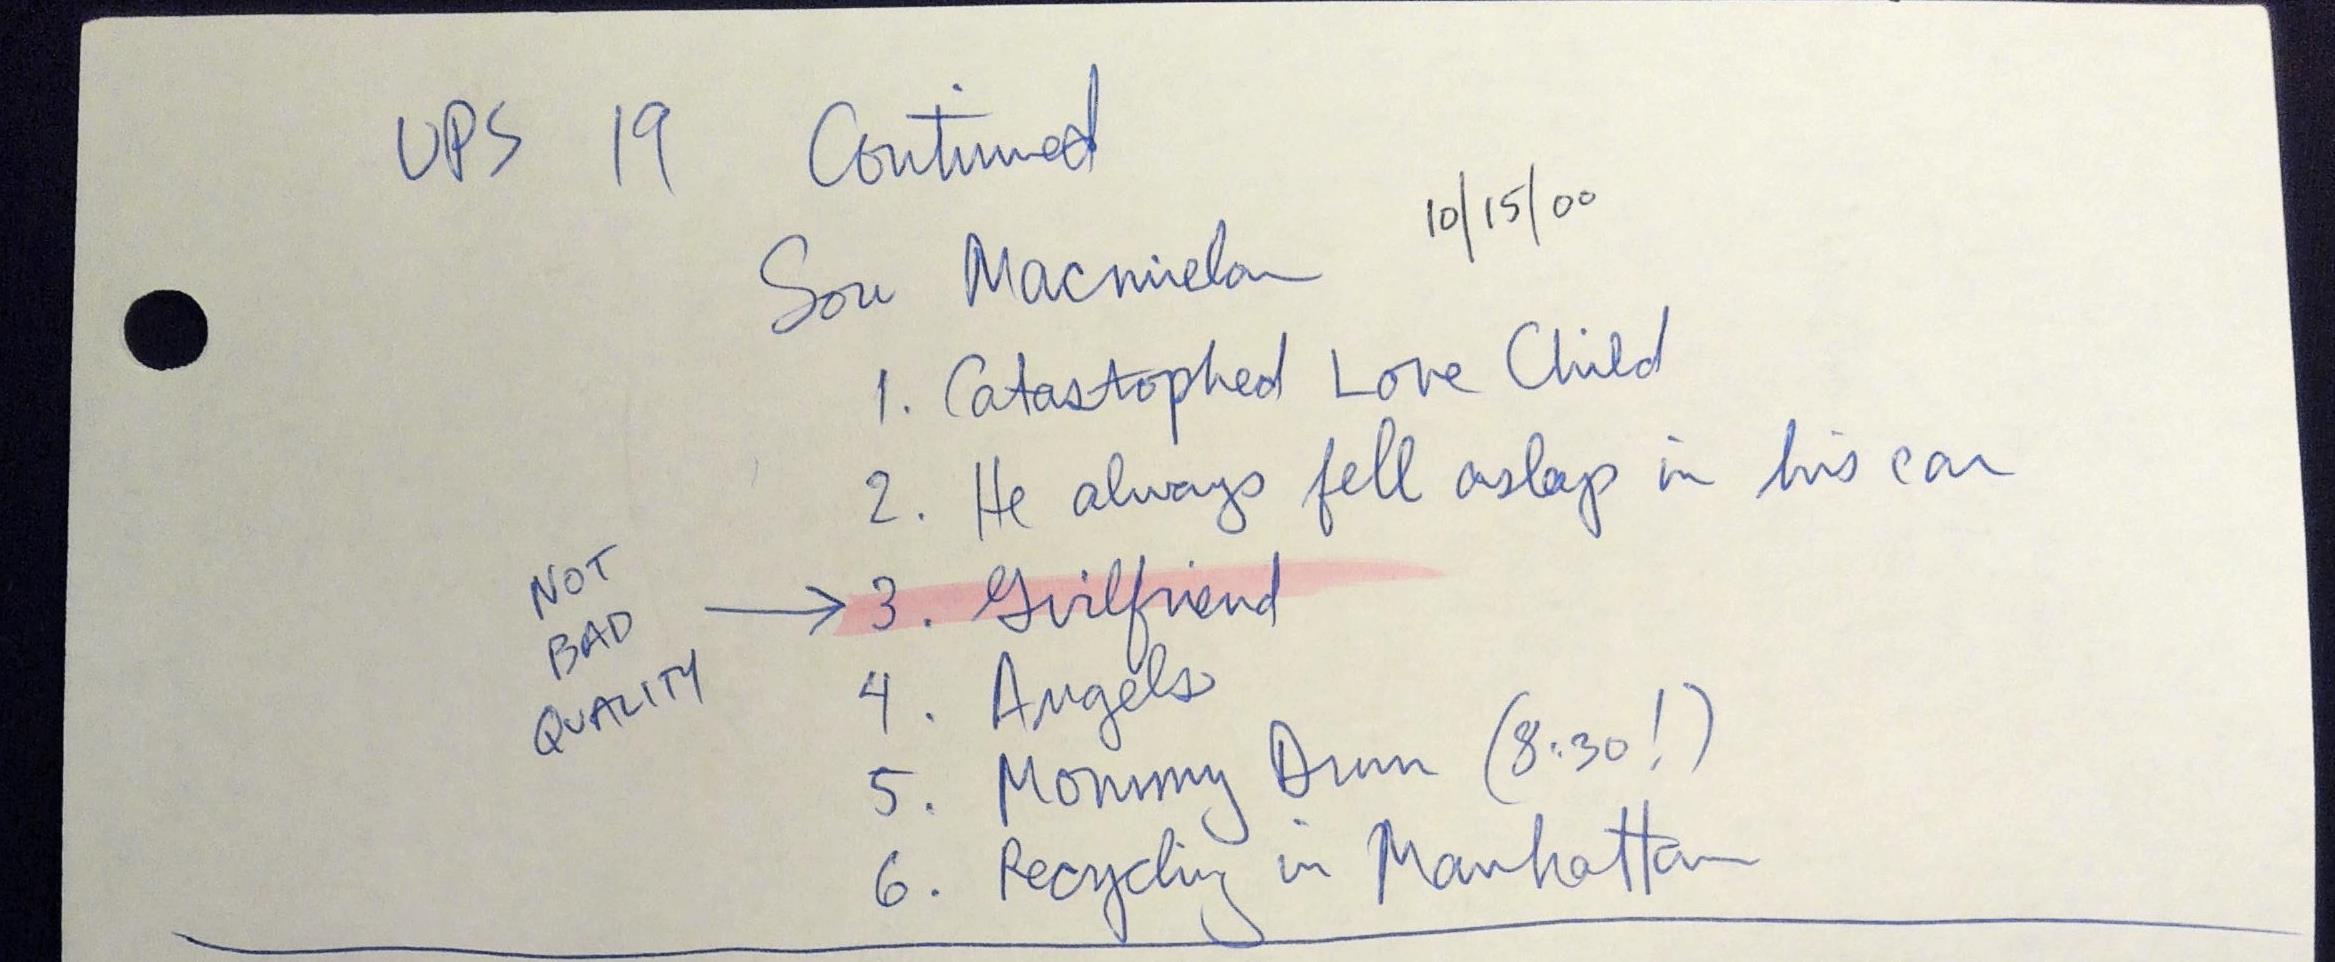 UPS 19 Continued
10/15/00
Sou Macmielan
1. Catastophed Love Child
2. He always fell aslap in his car
NOT
BAD
QUALITY → 3. Girlfriend
4. Angels
5. Mommy Drum (8:30!)
6. Recycling in Manhattan